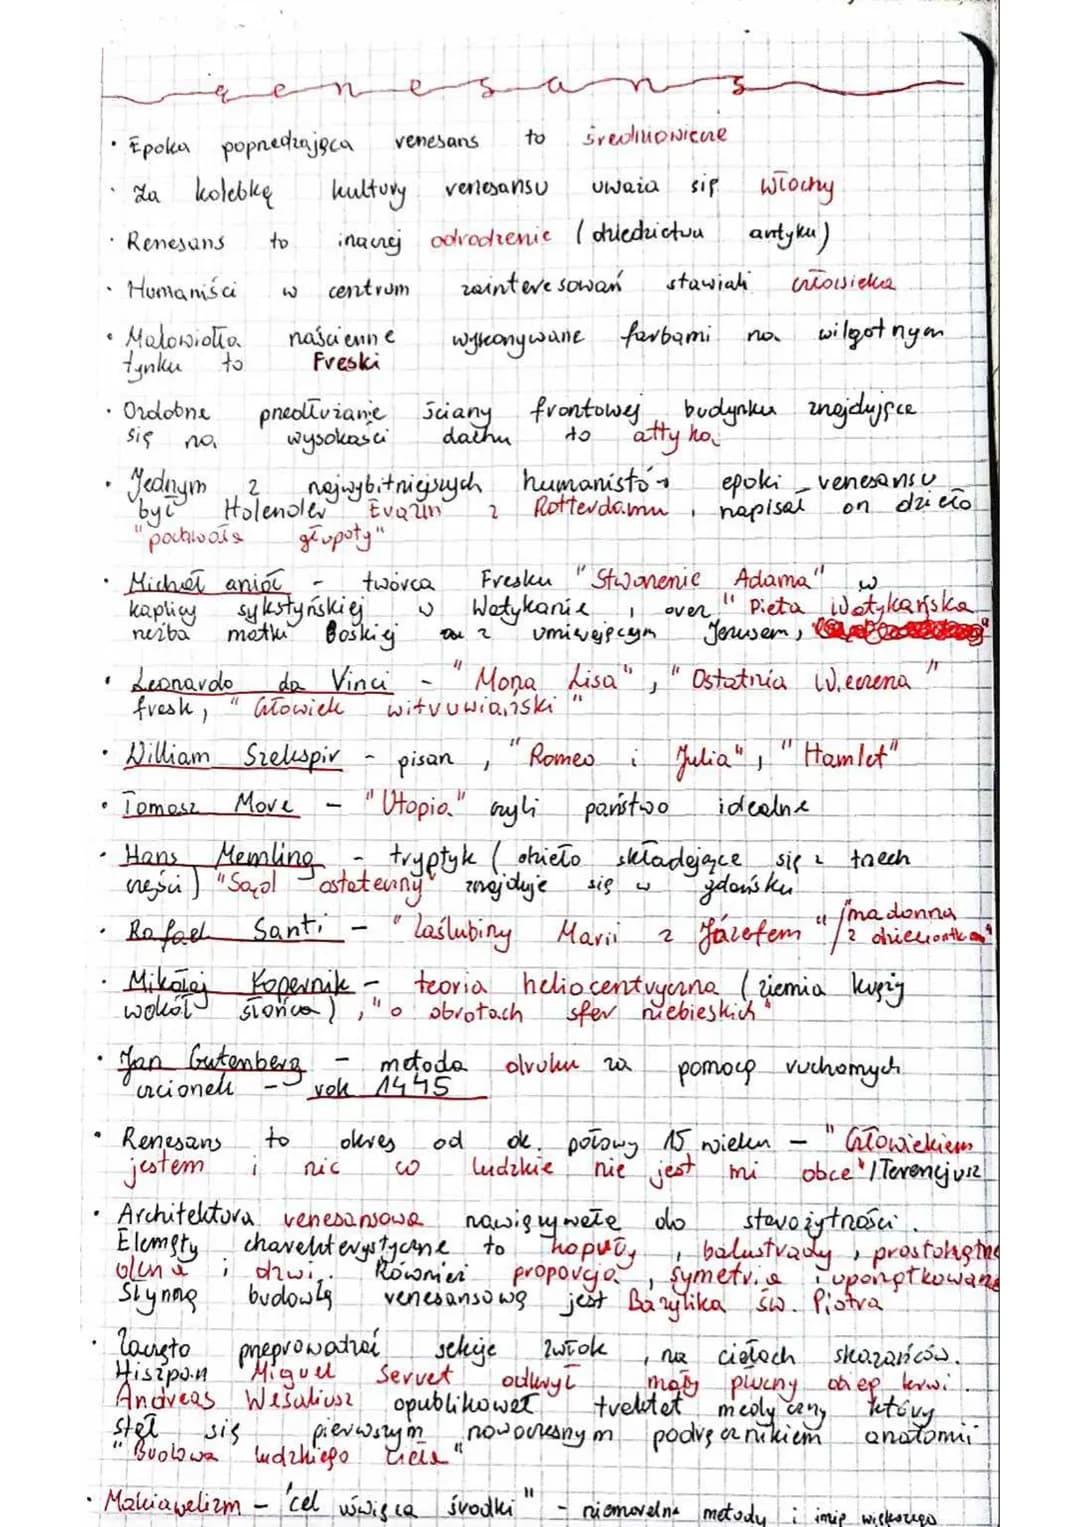 renesans
• Epoka poprzedzająca renesans to średniowiecze
• Za kolebkę kultury renesansu uważa się Włochy
• Renesans to inaczej odrodzenie (dziedzictwa antyku)
• Humaniści w centrum zainteresowań stawiali człowieka
• Malowidła naścienne wykonywane farbami na wilgotnym
tynku to Freski
• Ozdobne przedłużanie ściany frontowej budynku znajdujące
się na wysokości dachu to attyka
• Jednym z najwybitniejszych humanistów epoki renesansu
był Holender Erazm z Rotterdamu, napisał on dzieło
"pochwała głupoty"
• Michał anioł - twórca Fresku "Stworzenie Adama" w
kaplicy sykstyńskiej w Watykanie, oraz "Pieta Watykańska
rzeźba matki Boskiej z umierającym Jezusem,
• Leonardo da Vinci - "Mona Lisa", "Ostatnia Wieczerza"
fresk, "Człowiek witruwiański"
• William Szekspir - pisarz, "Romeo i Julia", "Hamlet"
• Tomasz More - "Utopia" czyli państwo idealne
• Hans Memling - tryptyk (dzieło składające się z trzech
części) "Sąd ostateczny" znajduje się w gdańsku
• Rafael Santi - "Zaślubiny Marii z Józefem" /madonna
z dzieciątkiem"
• Mikołaj Kopernik - teoria heliocentryczna (ziemia krąży
wokół słońca), "o obrotach sfer niebieskich"
• Jan Gutenberg - metoda druku za pomocą ruchomych
czcionek - rok 1445
• Renesans to okres od ok. połowy 15 wieku - "Człowiekiem
jestem i nic co ludzkie nie jest mi obce" / Terencjusz
• Architektura renesansowa nawiązywała do starożytności.
Elemęty charakterystyczne to kopuły, balustrady, prostokątne
okna i drzwi. Również proporcja, symetria i uporządkowane
Słynną budowlą renesansową jest Bazylika św. Piotra
• Zaczęto przeprowadzać sekcje zwłok, na ciałach skazańców.
Hiszpan Miguel Servet odkrył mały płucny obieg krwi.
Andreas Wesaliusz opublikował traktat medyczny który
stał się pierwszym nowoczesnym podręcznikiem anatomii
"Budowa ludzkiego ciała"
• Makiawelizm - "cel uświęca środki" - niemoralne metody i imię większego